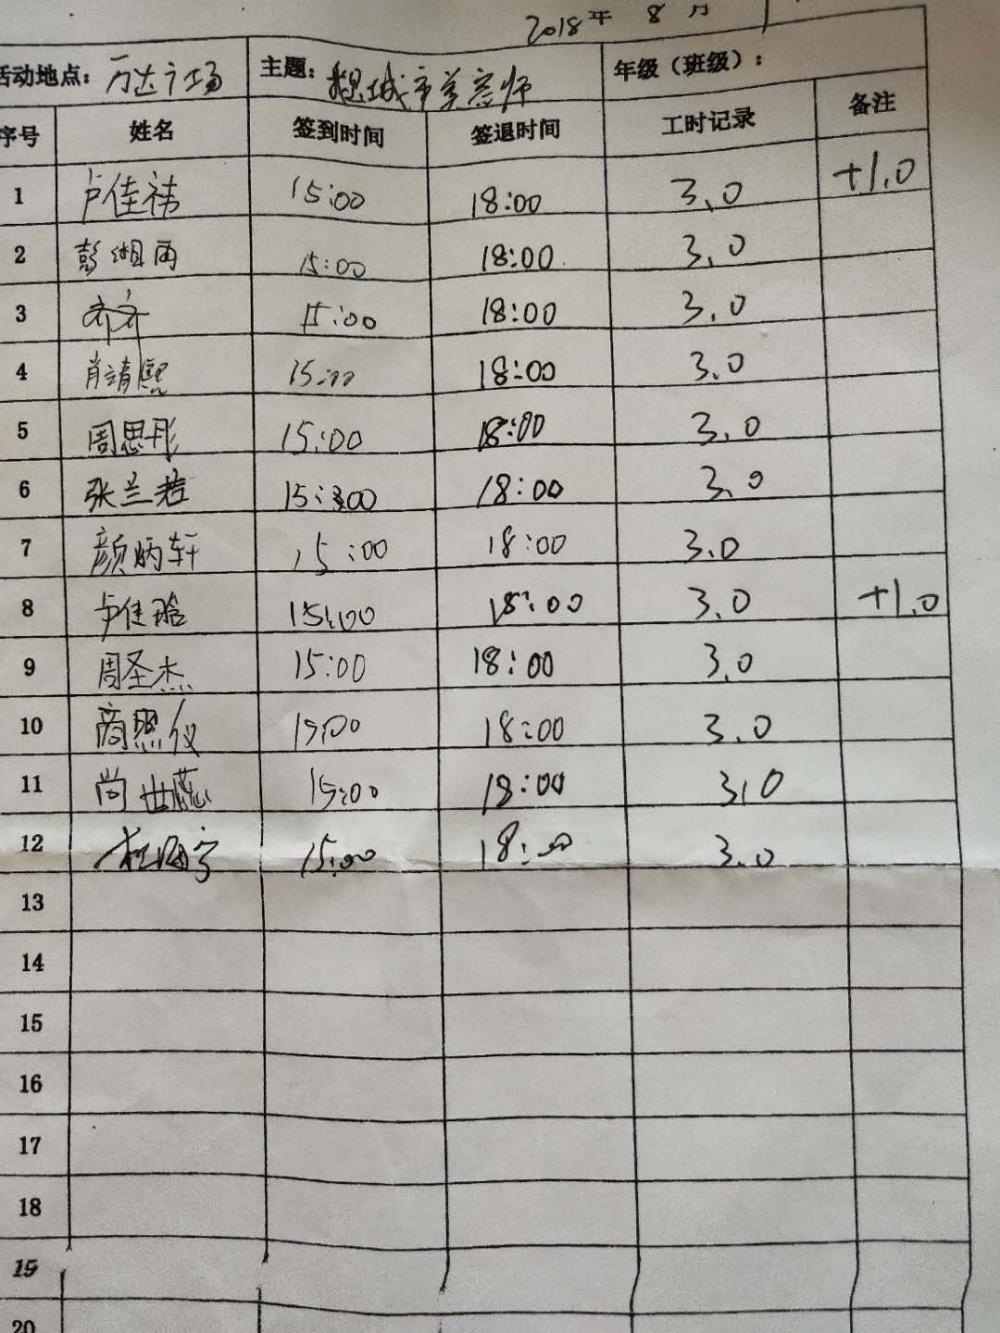 2018年 8月
活动地点：万达广场 主题：城市美容师 年级（班级）：
序号 姓名 签到时间 签退时间 工时记录 备注
1 卢佳祎 15:00 18:00 3.0 +1.0
2 彭湘雨 15:00 18:00 3.0
3 齐齐 15:00 18:00 3.0
4 肖靖熙 15:00 18:00 3.0
5 周思彤 15:00 18:00 3.0
6 张兰若 15:00 18:00 3.0
7 颜炳轩 15:00 18:00 3.0
8 卢佳晗 15:00 18:00 3.0 +1.0
9 周圣杰 15:00 18:00 3.0
10 商熙仪 15:00 18:00 3.0
11 尚世蕊 15:00 18:00 3.0
12 15:00 18:00 3.0
13
14
15
16
17
18
19
20